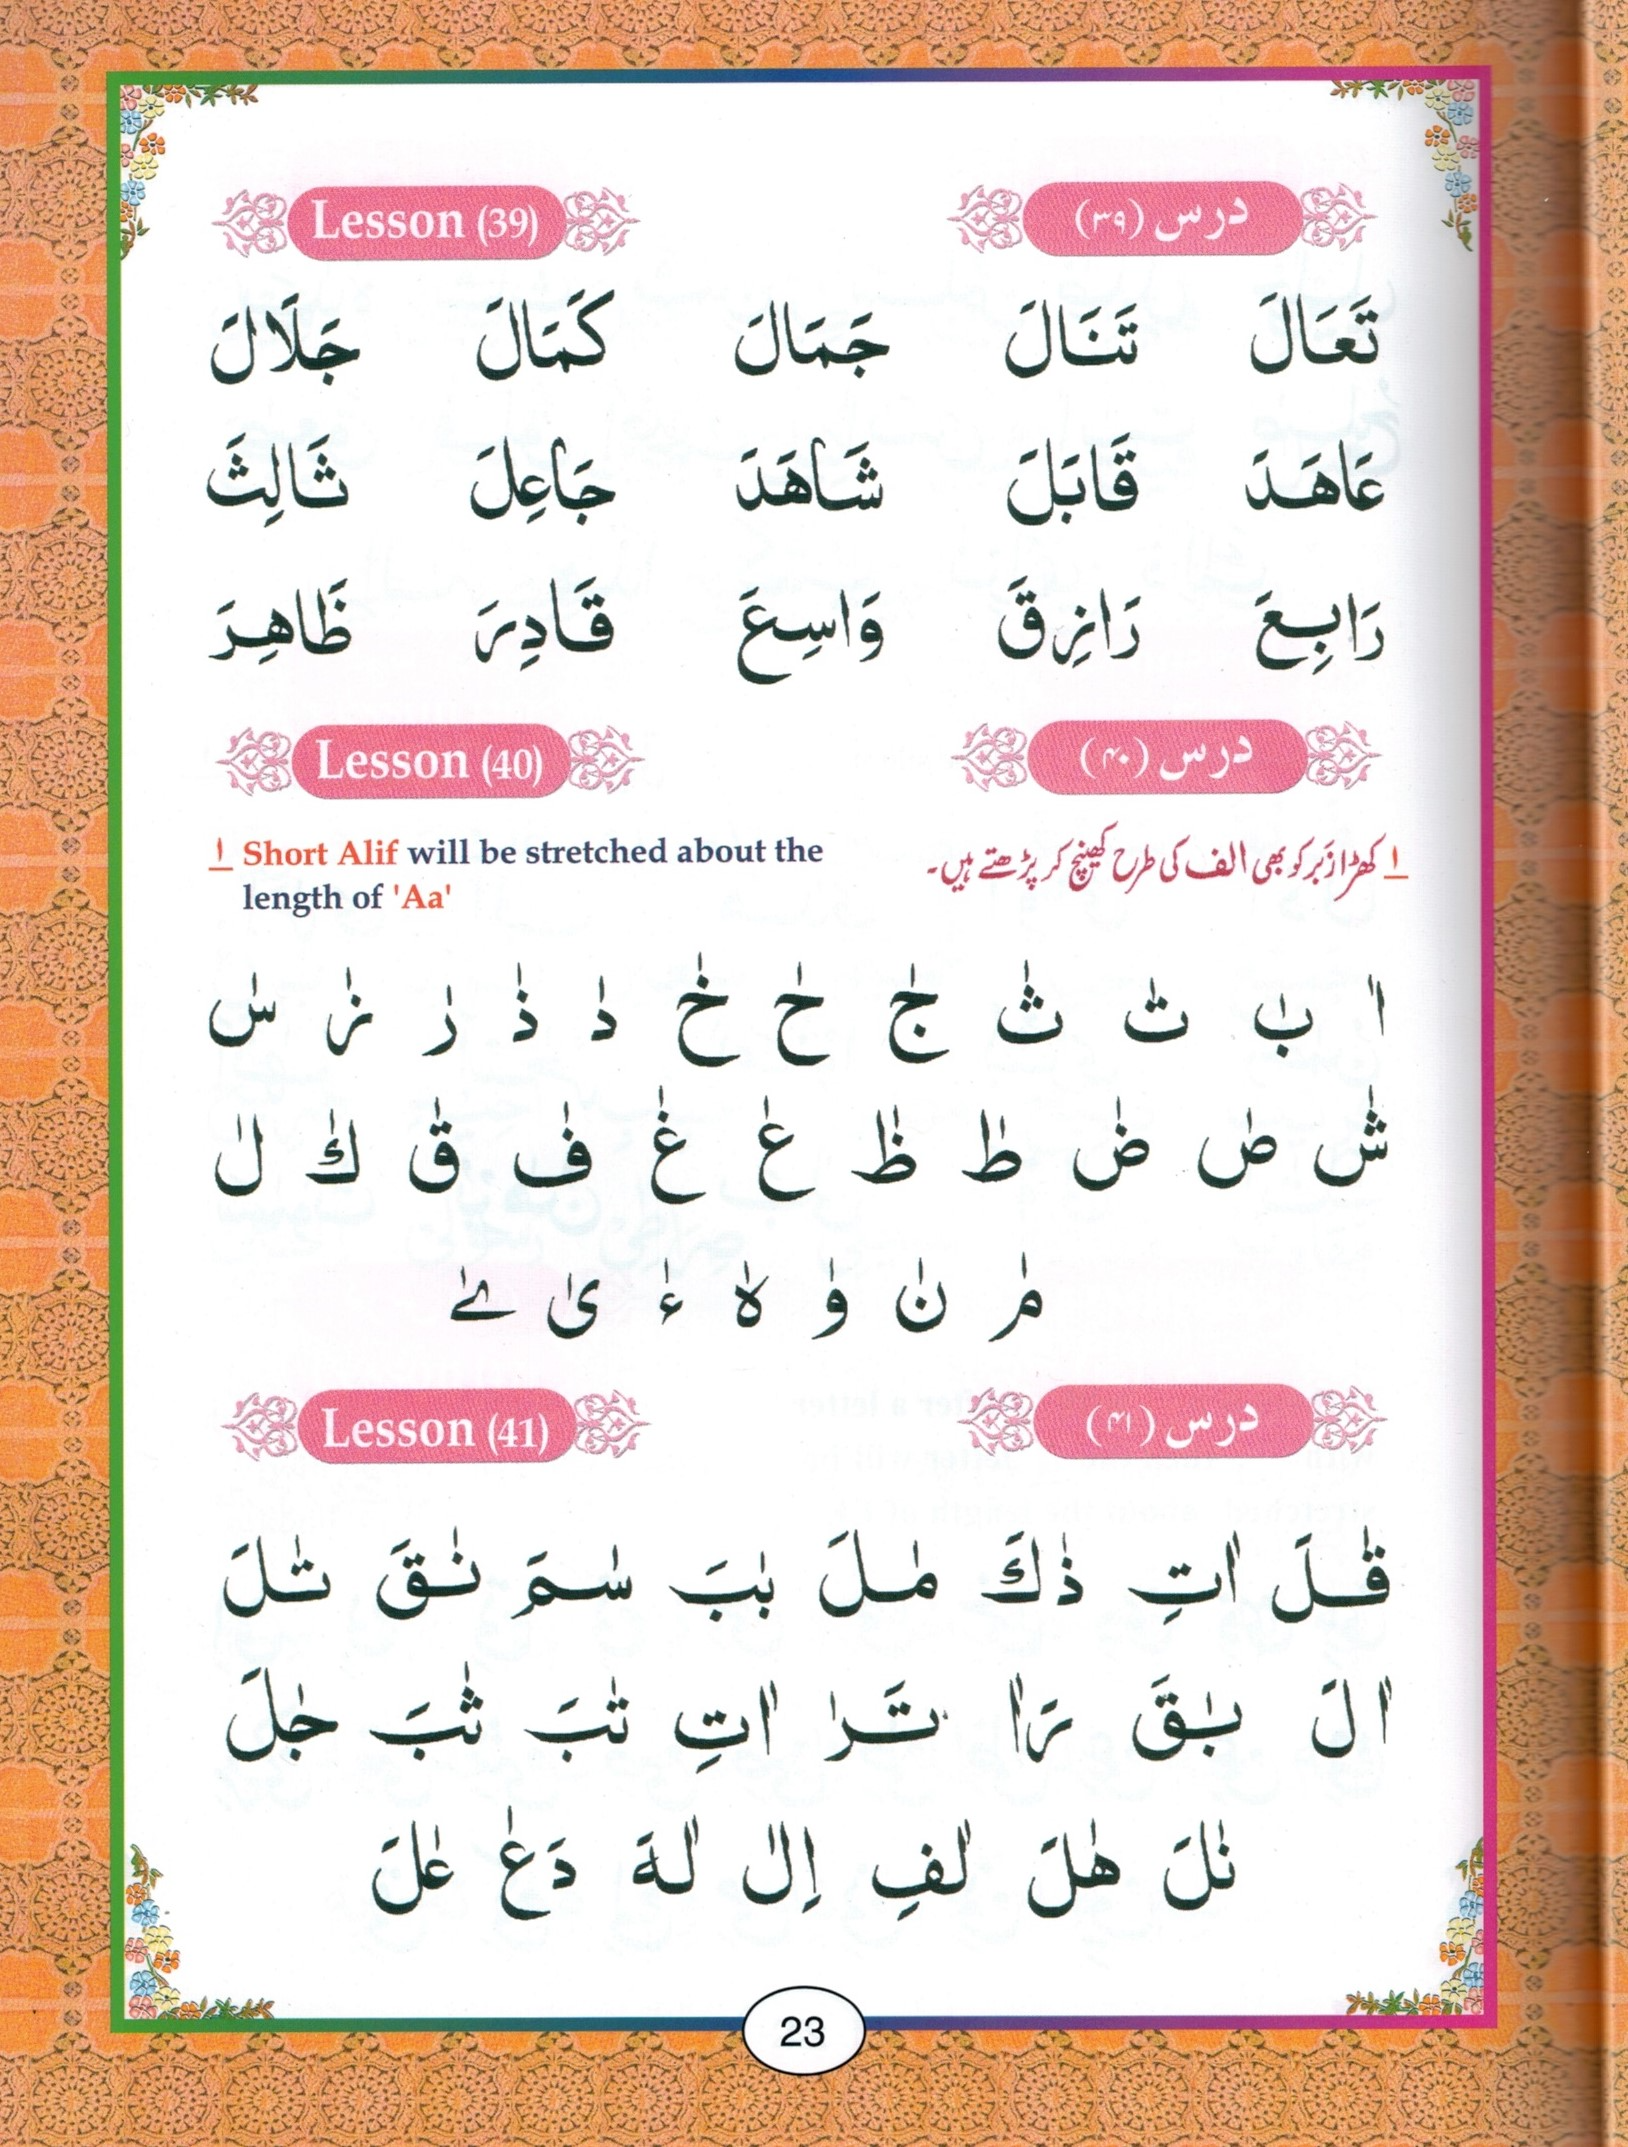 Lesson (39) درس (۳۹)
تَعَالَ تَنَالَ جَمَالَ كَمَالَ جَلَالَ
عَاهَدَ قَابَلَ شَاهَدَ جَاعِلَ ثَالِثَ
رَابِعَ رَازِقَ وَاسِعَ قَادِرَ ظَاهِرَ
Lesson (40) درس (۴۰)
ا Short Alif will be stretched about the
length of 'Aa'
ا کھڑا زَبَر کو بھی الف کی طرح کھینچ کر پڑھتے ہیں۔
اٰ بٰ تٰ ثٰ جٰ حٰ خٰ دٰ ذٰ رٰ زٰ سٰ
شٰ صٰ ضٰ طٰ ظٰ عٰ غٰ فٰ قٰ كٰ لٰ
مٰ نٰ وٰ هٰ ءٰ ىٰ ےٰ
Lesson (41) درس (۴۱)
قٰلَ اٰتِ ذٰكَ مٰلَ بٰبَ سٰمَ نٰقَ تٰلَ
اٰلَ بٰقَ رَاٰ تَرٰ اٰتِ تٰبَ ثٰبَ جٰلَ
نٰلَ هٰلَ لٰفِ اِلٰ لٰهَ دَعٰ عٰلَ
23